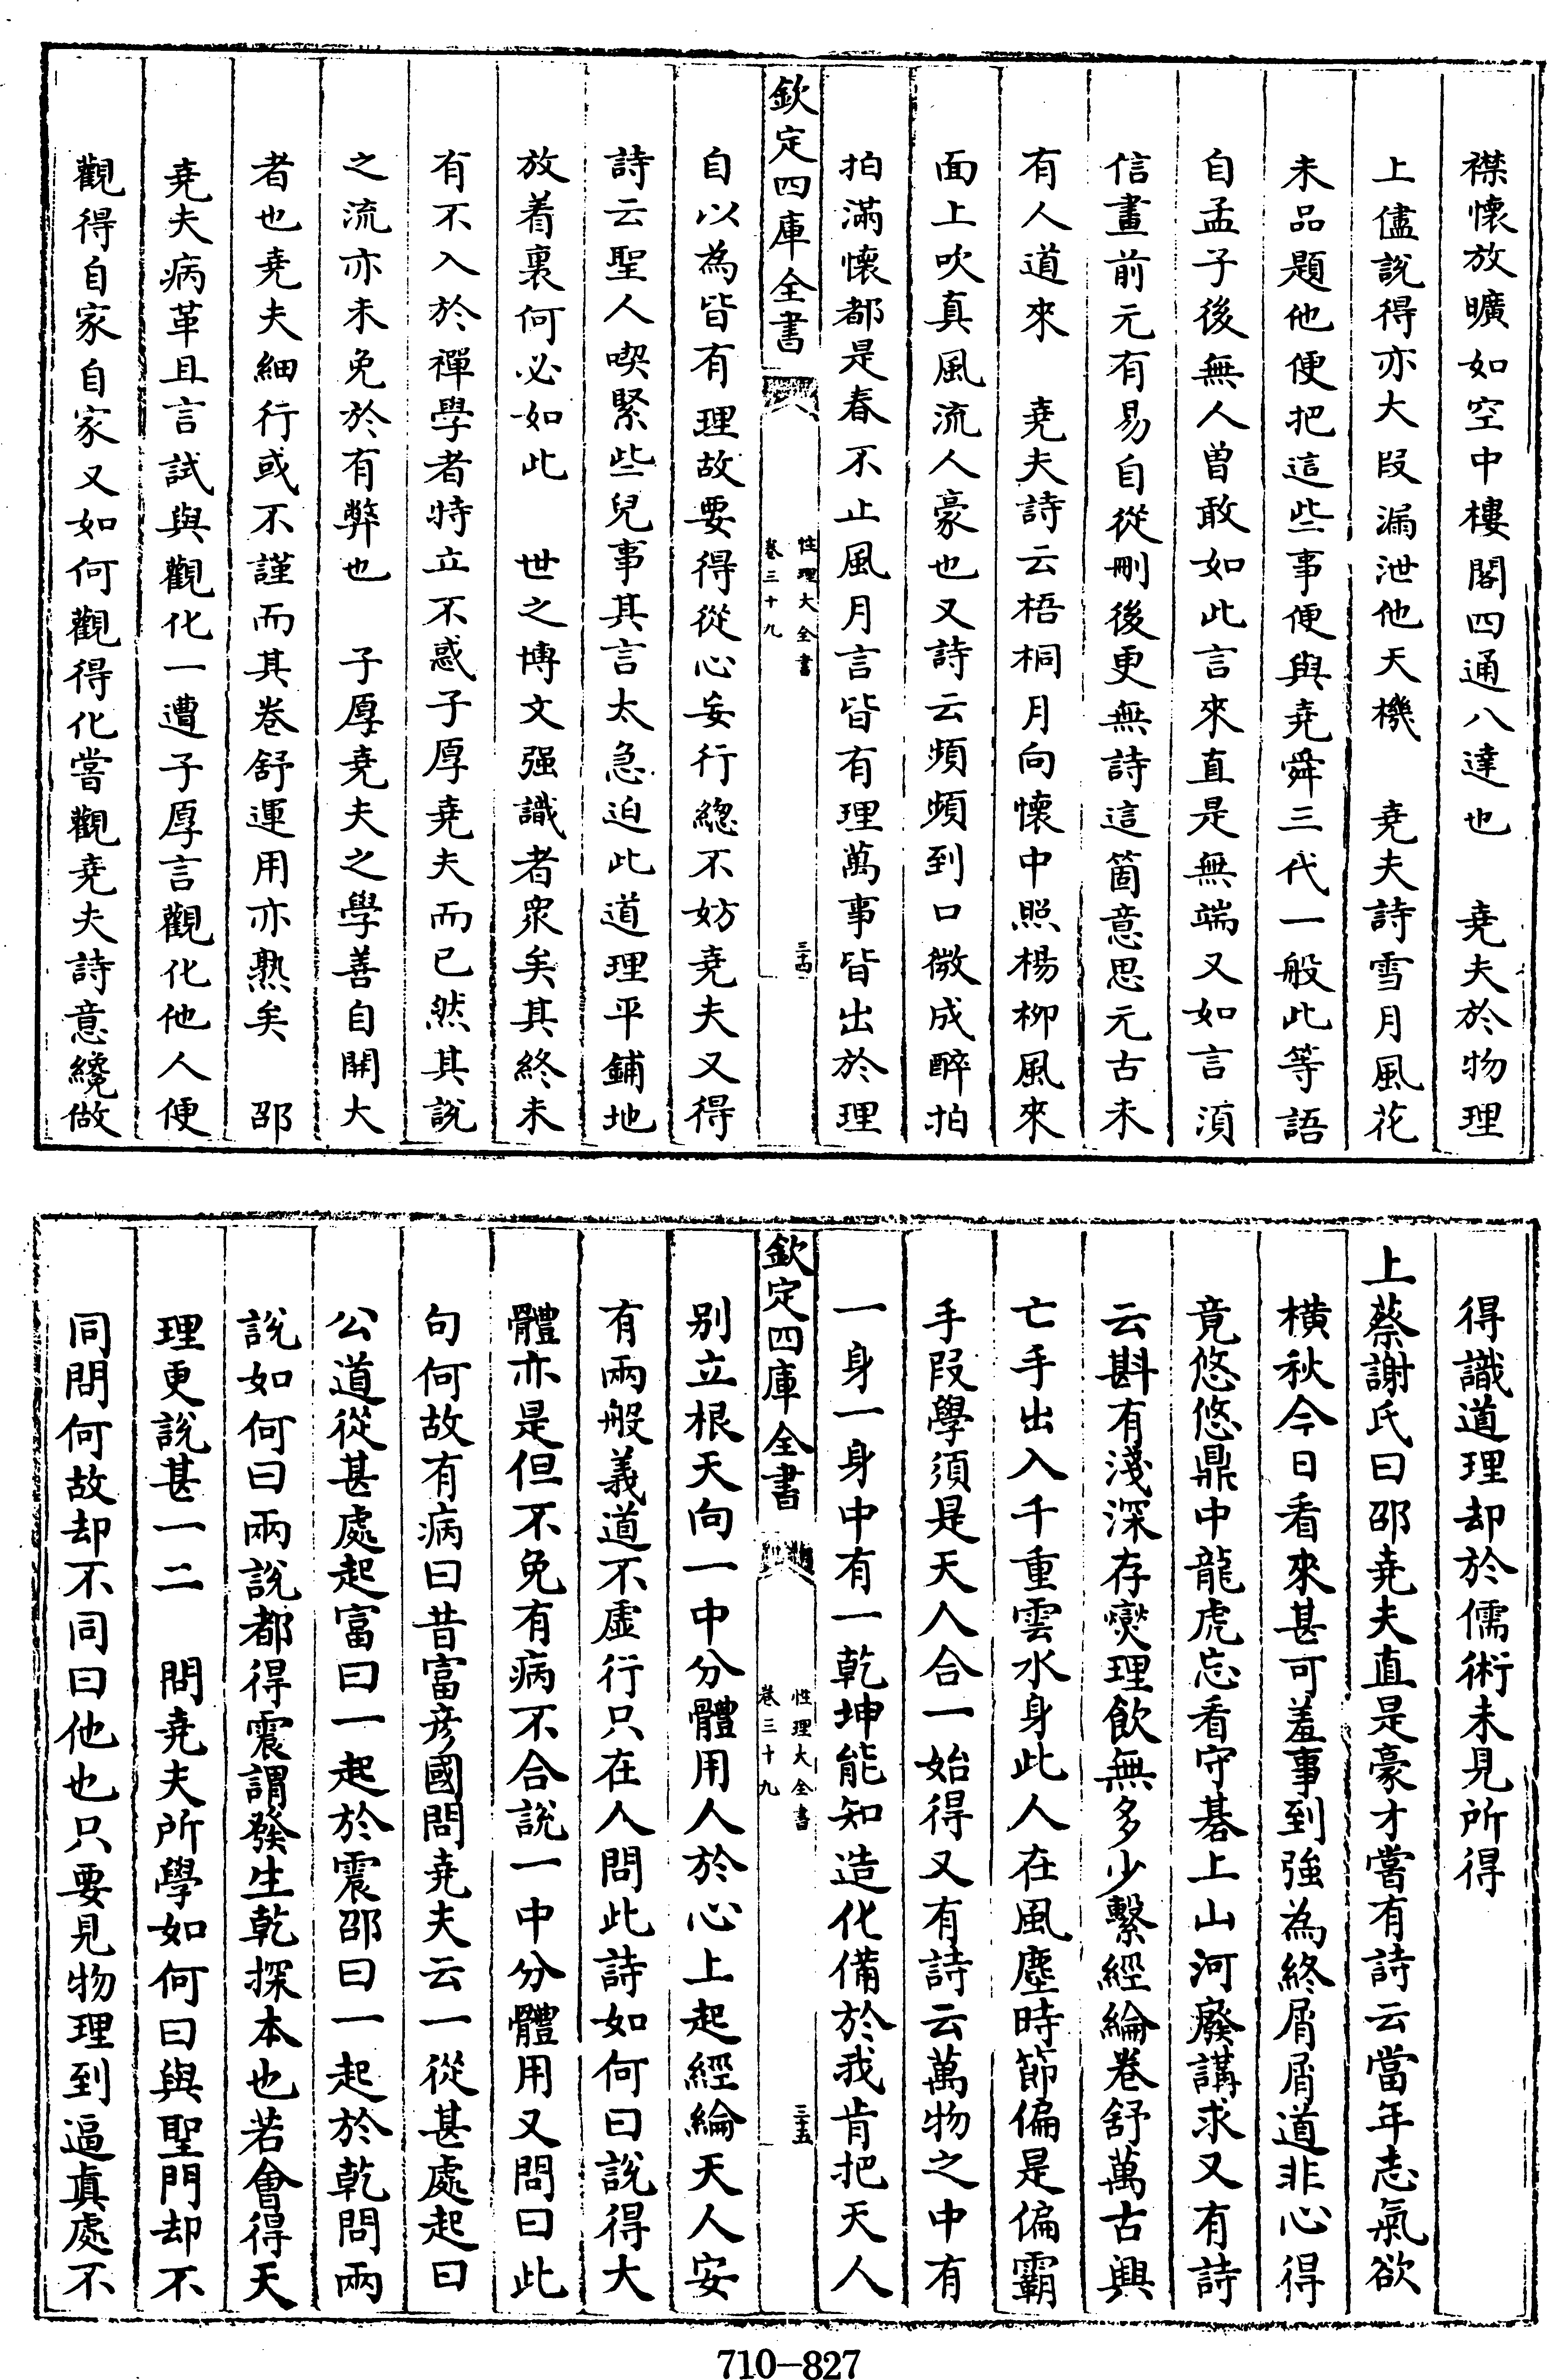 襟懷放曠如空中樓閣四通八達也　堯夫於物理
上儘說得亦大段漏泄他天機　堯夫詩雪月風花
未品題他便把這些事便與堯舜三代一般此等語
自孟子後無人曾敢如此言來直是無端又如言湏
信畫前元有易自從刪後更無詩這箇意思元古未
有人道來　堯夫詩云梧桐月向懷中照楊柳風來
面上吹真風流人豪也又詩云頻頻到口微成醉拍
拍滿懷都是春不止風月言皆有理萬事皆出於理
欽定四庫全書
性理大全書
卷三十九
三四
自以為皆有理故要得從心妄行緫不妨堯夫又得
詩云聖人喫緊些兒事其言太急迫此道理平鋪地
放着裏何必如此　世之博文强識者衆矣其終未
有不入於禪學者特立不惑子厚堯夫而已然其說
之流亦未免於有弊也　子厚堯夫之學善自開大
者也堯夫細行或不謹而其卷舒運用亦熟矣　邵
堯夫病革且言試與觀化一遭子厚言觀化他人便
觀得自家自家又如何觀得化嘗觀堯夫詩意纔做
得識道理却於儒術未見所得
上蔡謝氏曰邵堯夫直是豪才嘗有詩云當年志氣欲
橫秋今日看來甚可羞事到強為終屑屑道非心得
竟悠悠鼎中龍虎忘看守碁上山河廢講求又有詩
云斟有淺深存爕理飲無多少繫經綸卷舒萬古興
亡手出入千重雲水身此人在風塵時節偏是偏霸
手段學須是天人合一始得又有詩云萬物之中有
一身一身中有一乾坤能知造化備於我肯把天人
欽定四庫全書
性理大全書
卷三十九
三五
别立根天向一中分體用人於心上起經綸天人安
有兩般義道不虛行只在人問此詩如何曰說得大
體亦是但不免有病不合說一中分體用又問曰此
句何故有病曰昔富彦國問堯夫云一從甚處起曰
公道從甚處起富曰一起於震邵曰一起於乾問兩
說如何曰兩說都得震謂發生乾探本也若會得天
理更說甚一二　問堯夫所學如何曰與聖門却不
同問何故却不同曰他也只要見物理到逼真處不
710-827